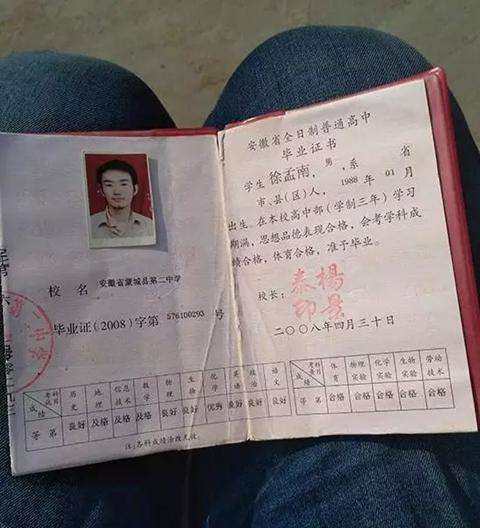 校 名 安徽省蒙城县第二中学
毕业证(2008)字第 576100293 号
考试科目 成绩 历史 地理 信息技术 数学 物理 生物 化学 英语 政治 语文
等第 良好 及格 及格 及格 良好 良好 优秀 良好 良好 良好
注:各科成绩涂改无效.
安徽省全日制普通高中
毕业证书
学生 徐孟南, 男, 系 省
市、县(区)人, 1988 年 01 月
出生。在本校高中部(学制三年)学习
期满,思想品德表现合格,会考学科成
绩合格,体育合格,准予毕业。
校长: 楊景泰印
二〇〇八年四月三十日
考查科目 成绩 体育 物理实验 化学实验 生物实验 劳动技术
等第 合格 合格 合格 合格 合格